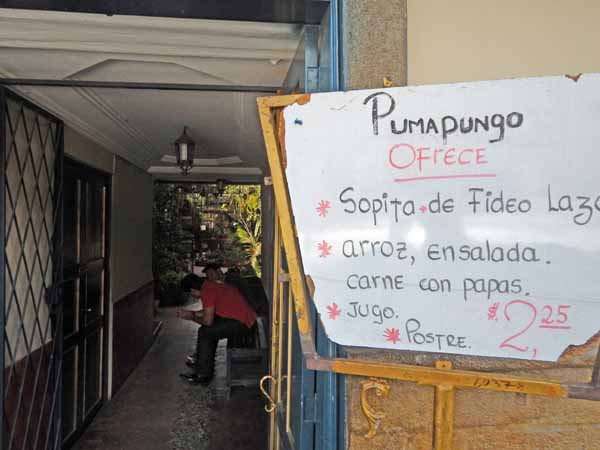 Pumapungo
OFRECE
* Sopita de Fideo Lazo
* arroz, ensalada.
carne con papas.
* Jugo.
* Postre.
$ 2,25